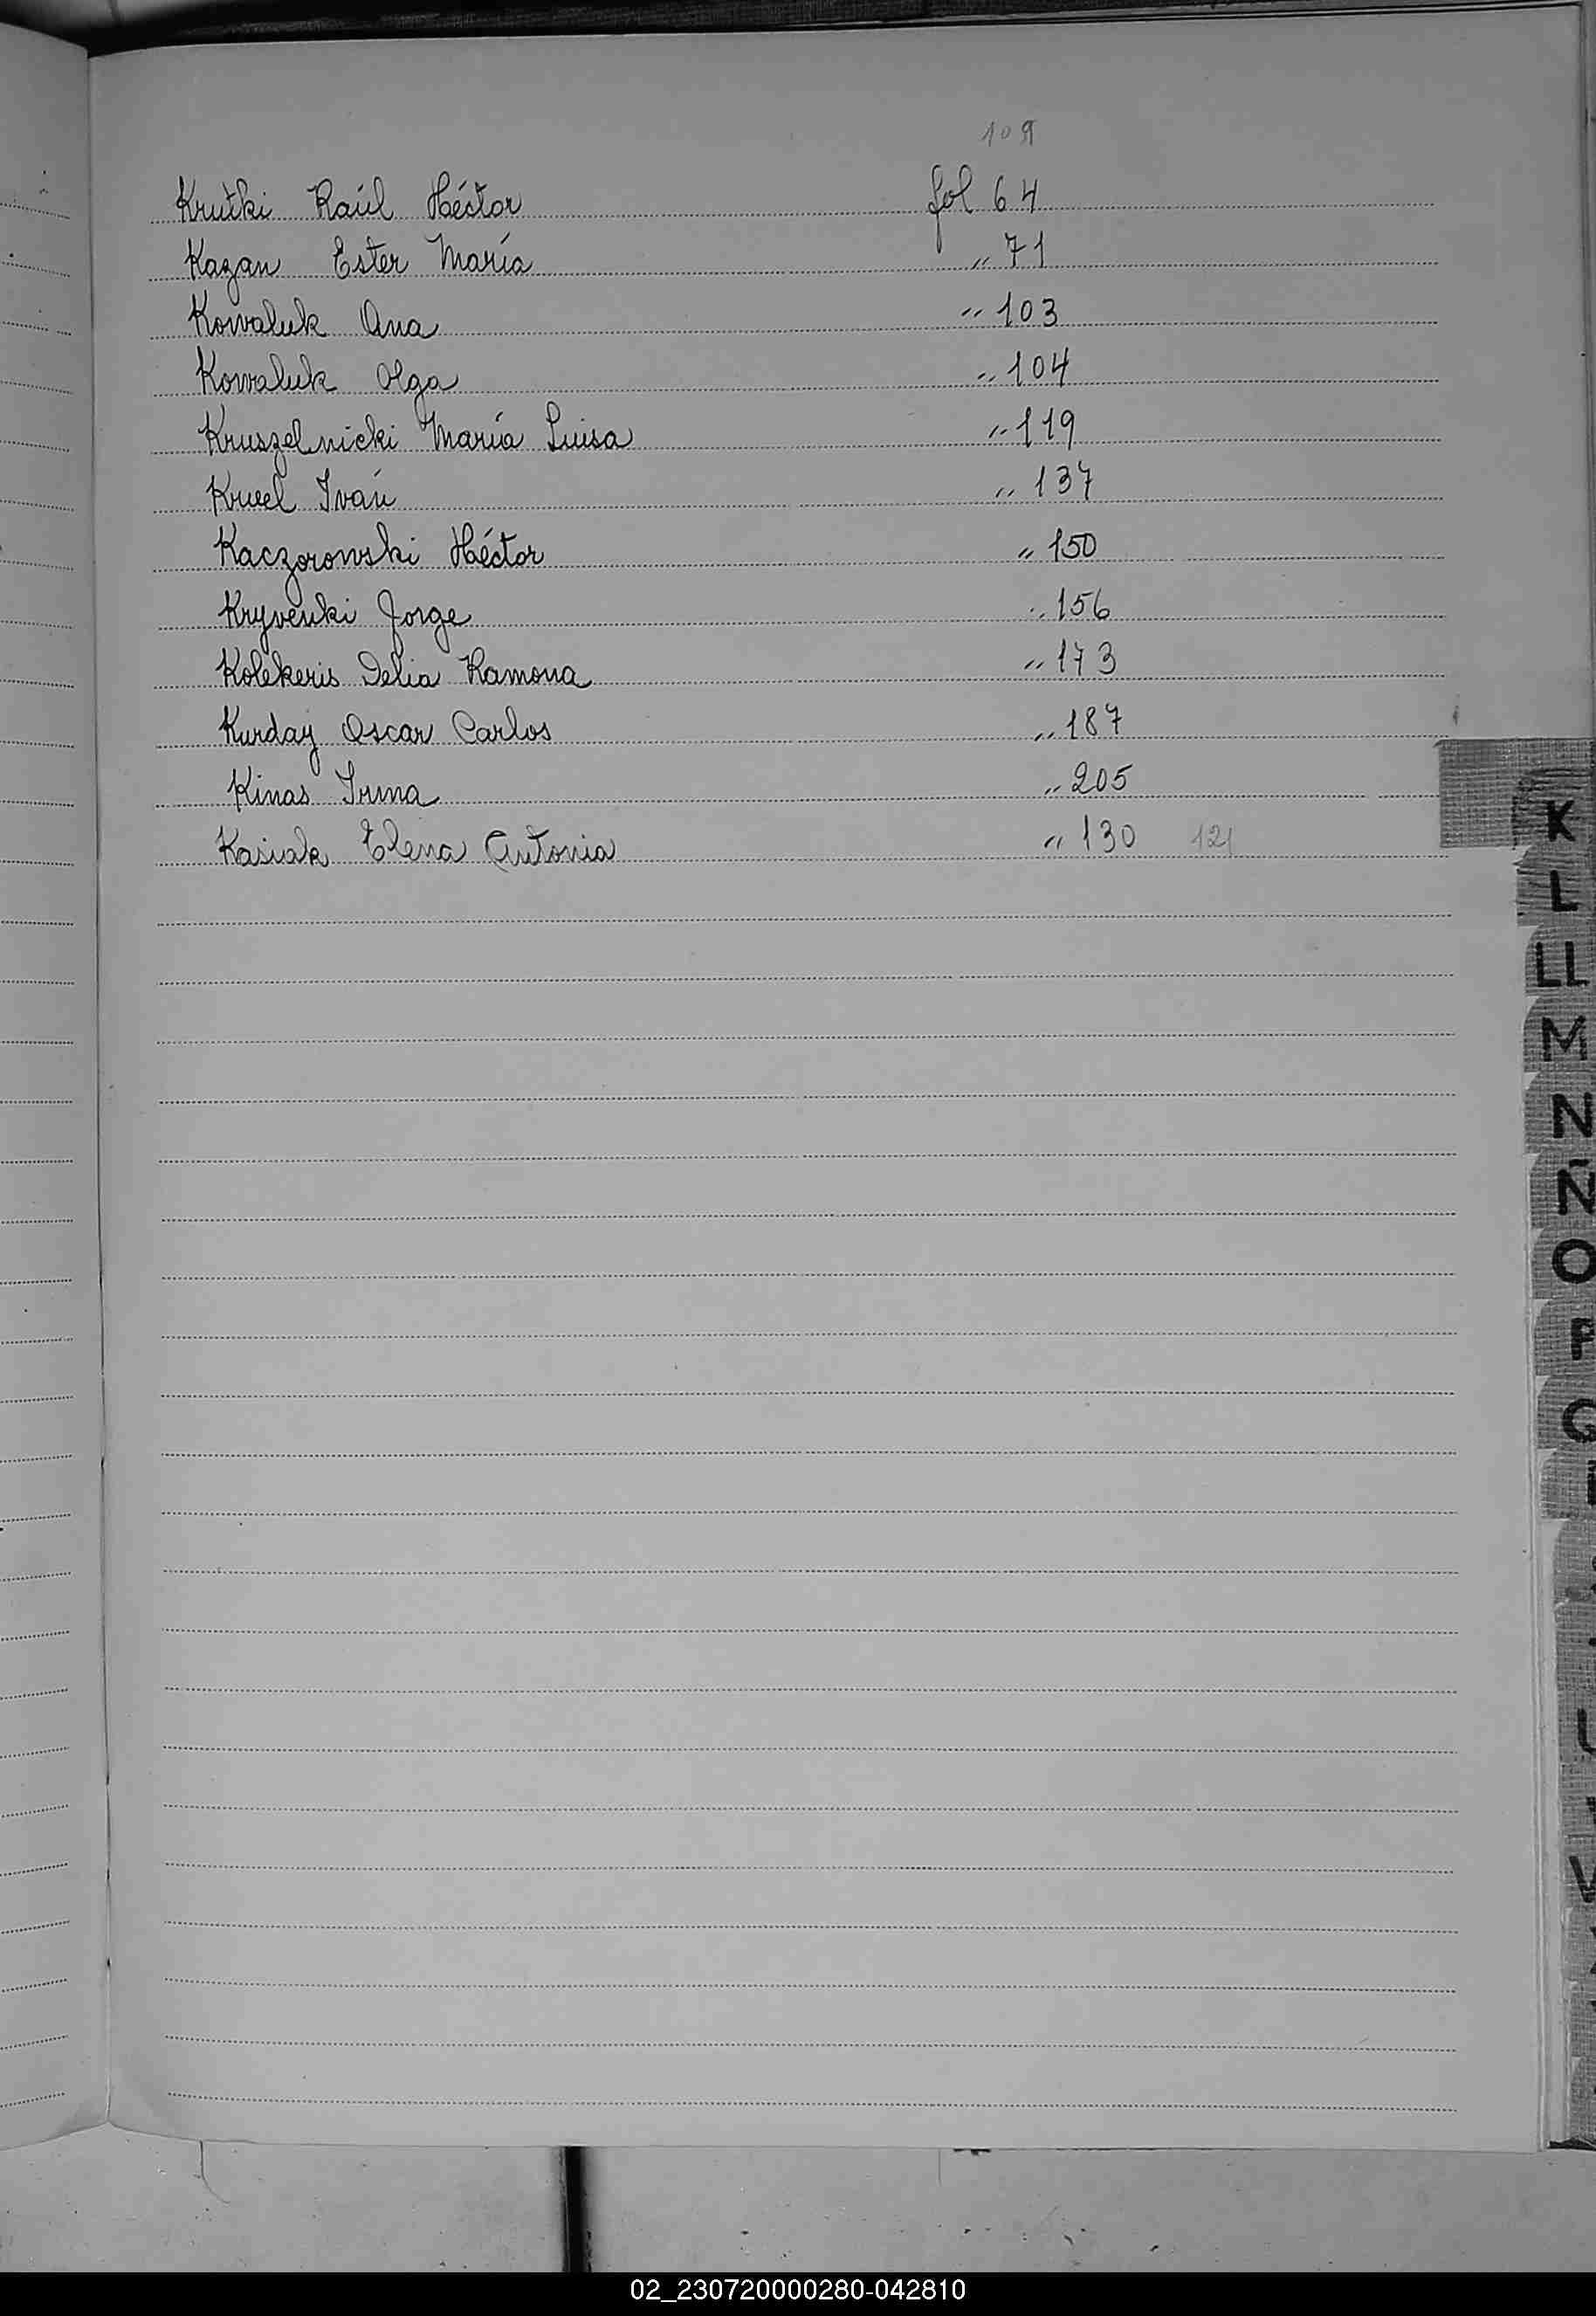 109
Krutki Raúl Héctor fol 64
Kazan Ester María " 71
Kowaluk Ana " 103
Kowaluk Olga " 104
Kruszelnicki María Luisa " 119
Kruel Iván " 137
Kaczorowski Héctor " 150
Kryvenki Jorge " 156
Kolekeris Delia Ramona " 173
Kurday Oscar Carlos " 187
Kinas Irma " 205
Kasiuak Elena Antonia " 130 121
K
L
LL
M
N
Ñ
O
P
02_230720000280-042810